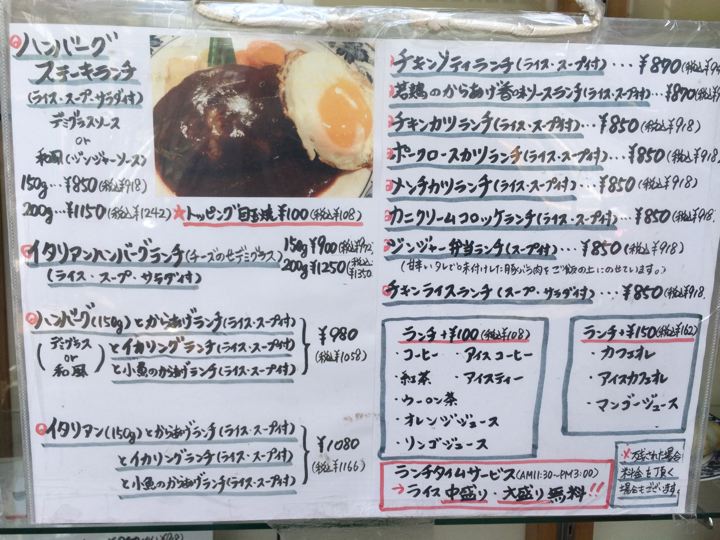 ハンバーグ
ステーキランチ
(ライス・スープ・サラダ付)
デミグラスソース
or
和風(ジンジャーソース)
150g…¥850(税込¥918)
200g…¥1150(税込¥1242)
★トッピング目玉焼¥100(税込¥108)
イタリアンハンバーグランチ(チーズのせデミグラス)
(ライス・スープ・サラダ付)
150g ¥900(税込¥972
200g ¥1250(税込¥1350
ハンバーグ(150g)とからあげランチ(ライス・スープ付)
(デミグラス or 和風)
とイカリングランチ(ライス・スープ付)
と小魚のから揚げランチ(ライス・スープ付)
¥980
(税込¥1058)
イタリアン(150g)とからあげランチ(ライス・スープ付)
とイカリングランチ(ライス・スープ付)
と小魚のからあげランチ(ライス・スープ付)
¥1080
(税込¥1166)
チキンソティランチ(ライス・スープ付)…¥870(税込¥94
若鶏のからあげ香味ソースランチ(ライス・スープ付)…¥870(税込¥9
チキンカツランチ(ライス・スープ付)…¥850(税込¥918)
ポークロースカツランチ(ライス・スープ付)…¥850(税込¥918)
メンチカツランチ(ライス・スープ付)…¥850(税込¥918)
カニクリームコロッケランチ(ライス・スープ付)…¥850(税込¥918)
ジンジャー弁当ランチ(スープ付)…¥850(税込¥918)
(甘辛いタレで味付けした豚ばら肉をご飯の上にのせています。)
チキンライスランチ(スープ・サラダ付)…¥850(税込¥918
ランチ+¥100(税込¥108)
・コーヒー ・アイスコーヒー
・紅茶 ・アイスティー
・ウーロン茶
・オレンジジュース
・リンゴジュース
ランチ+¥150(税込¥162)
・カフェオレ
・アイスカフェオレ
・マンゴージュース
ランチタイムサービス(AM11:30~PM3:00)
→ライス中盛り・大盛り無料!!
※残された場合
料金を頂く
場合もございます